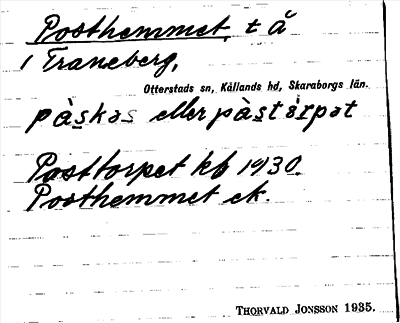 Posthemmet, t å
i Traneberg,
Otterstads sn, Kållands hd, Skaraborgs län.
pàskəs eller pàstårpət
Posttorpet kb 1930.
Posthemmet ek.
THORVALD JONSSON 1935.